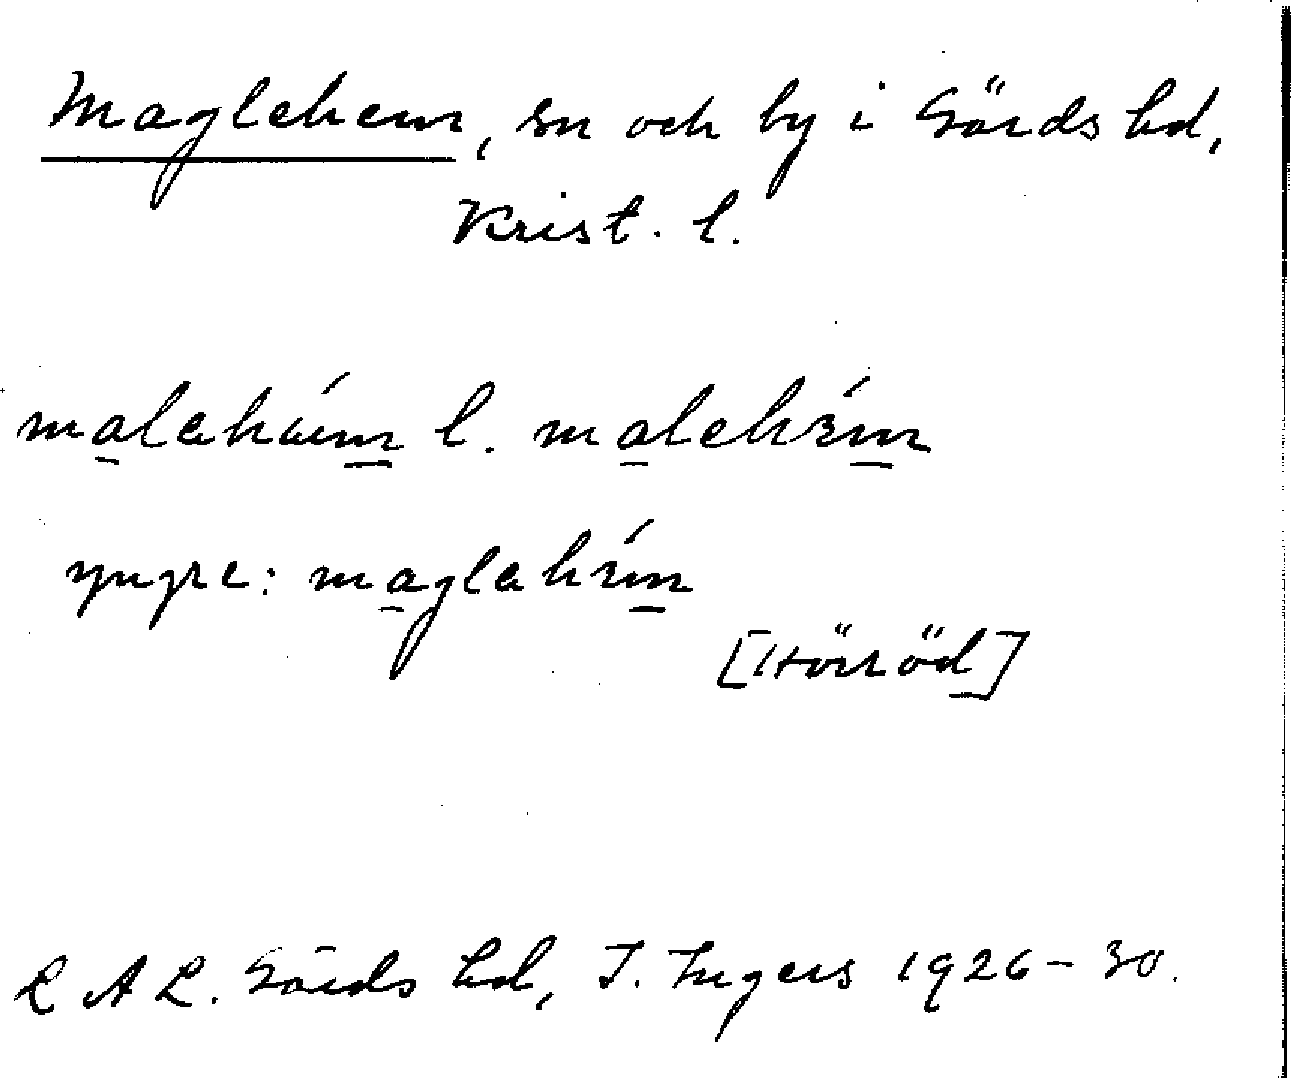 Maglehem, sn och by i Gärds hd,
Krist. l.
malehäim l. malehɛ́im
yngre: maglehɛ́im
[Hörröd]
L A L. Gärds hd, I. Ingers 1926–30.